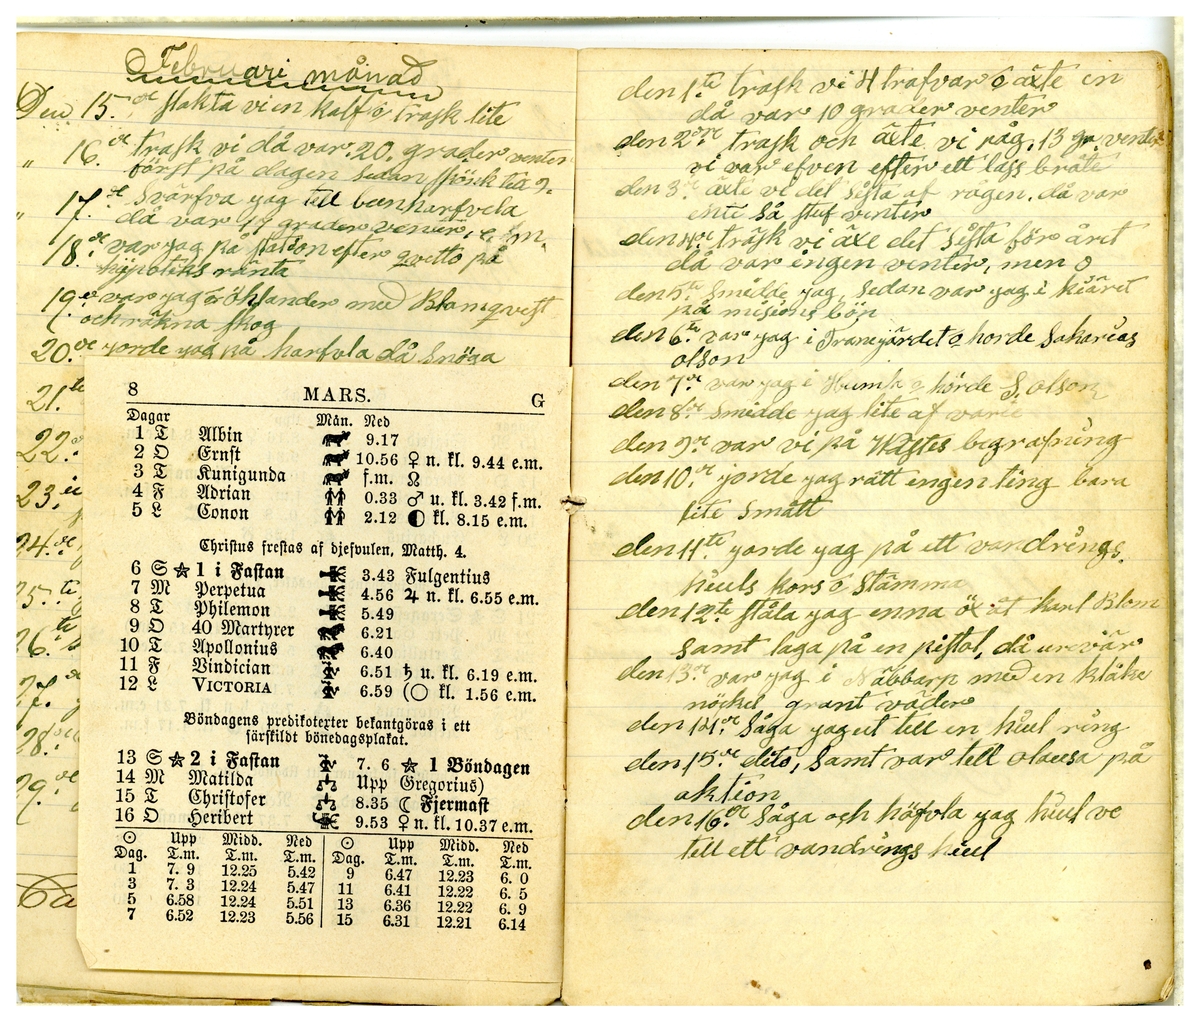 Februari månad
Den 15.de slakta vi en kalf o trask lite
" 16.de trask vi då var. 20. grader venter
först på dagen sedan
" 17.de Svarfva yag tell benharfvela
då var 17 grader venter, e. m.
18.de var yag på station efter qvetto på
hypoteks ränta
19.de var yag Öhlander med Blomqvist
och räkna skog
20.de yorde yag på harfvla då snöga
21.te
22.de
23.
24.de
25.te
26.te
27.de
28.de
29.de
8 MARS. G
Dagar Mån. Ned
1 T Albin 9.17
2 O Ernst 10.56 ♀ n. kl. 9.44 e.m.
3 T Kunigunda f.m. ☊
4 F Adrian 0.33 ♂ u. kl. 3.42 f.m.
5 L Conon 2.12 ◐ kl. 8.15 e.m.
Christus frestas af djefvulen, Matth. 4.
6 S ☆ 1 i Fastan 3.43 Fulgentius
7 M Perpetua 4.56 ♃ n. kl. 6.55 e.m.
8 T Philemon 5.49
9 O 40 Martyrer 6.21
10 T Apollonius 6.40
11 F Vindician 6.51 ♄ u. kl. 6.19 e.m.
12 L VICTORIA 6.59 (○ kl. 1.56 e.m.
Böndagens predikotexter bekantgöras i ett
särskildt bönedagsplakat.
13 S ☆ 2 i Fastan 7. 6 ☆ 1 Böndagen
14 M Matilda Upp Gregorius)
15 T Christofer 8.35 ☾ Fjermast
16 O Heribert 9.53 ♀ n. kl. 10.37 e.m.
☉ Upp Midd. Ned ☉ Upp Midd. Ned
Dag. T.m. T.m. T.m. Dag. T.m. T.m. T.m.
1 7. 9 12.25 5.42 9 6.47 12.23 6. 0
3 7. 3 12.24 5.47 11 6.41 12.22 6. 5
5 6.58 12.24 5.51 13 6.36 12.22 6. 9
7 6.52 12.23 5.56 15 6.31 12.21 6.14
den 1.te trask vi 4 trafvar o äxte en
då var 10 grader venter
den 2.dre trask och äxte vi råg, 13 gr. venter
vi var efven efter ett lass bråte
den 3.de äxte vi det sista af rogen. då var
inte så stuf venter
den 4.de träsk vi äxe det sista för året
då var ingen venter, men o
den 5.te Smidde yag, sedan var yag i kiäret
på misions bön
den 6.te var yag i Tranegärdet o horde Sakarias
olson
den 7.de var yag i Humla o hörde S. olson
den 8.de Smidde yag lite af varie
den 9.de var vi på Wästes begrafning
den 10.de yorde yag rätt ingenting bara
lite smått
den 11.te yorde yag på ett vandrings.
hiuls kors o stämma
den 12.te ståla yag enna öx åt karl Blom
samt laga på en pistol, då urvär
den 13.de var yag i Näbbarp med en klåke
nöckel, grant väder
den 14.de Såga yag ut till en hiul ring
den 15.de dito, samt var tell olausa på
aktion
den 16.de Såga och höfvla yag hiul ve
tell ett vandrings hiul